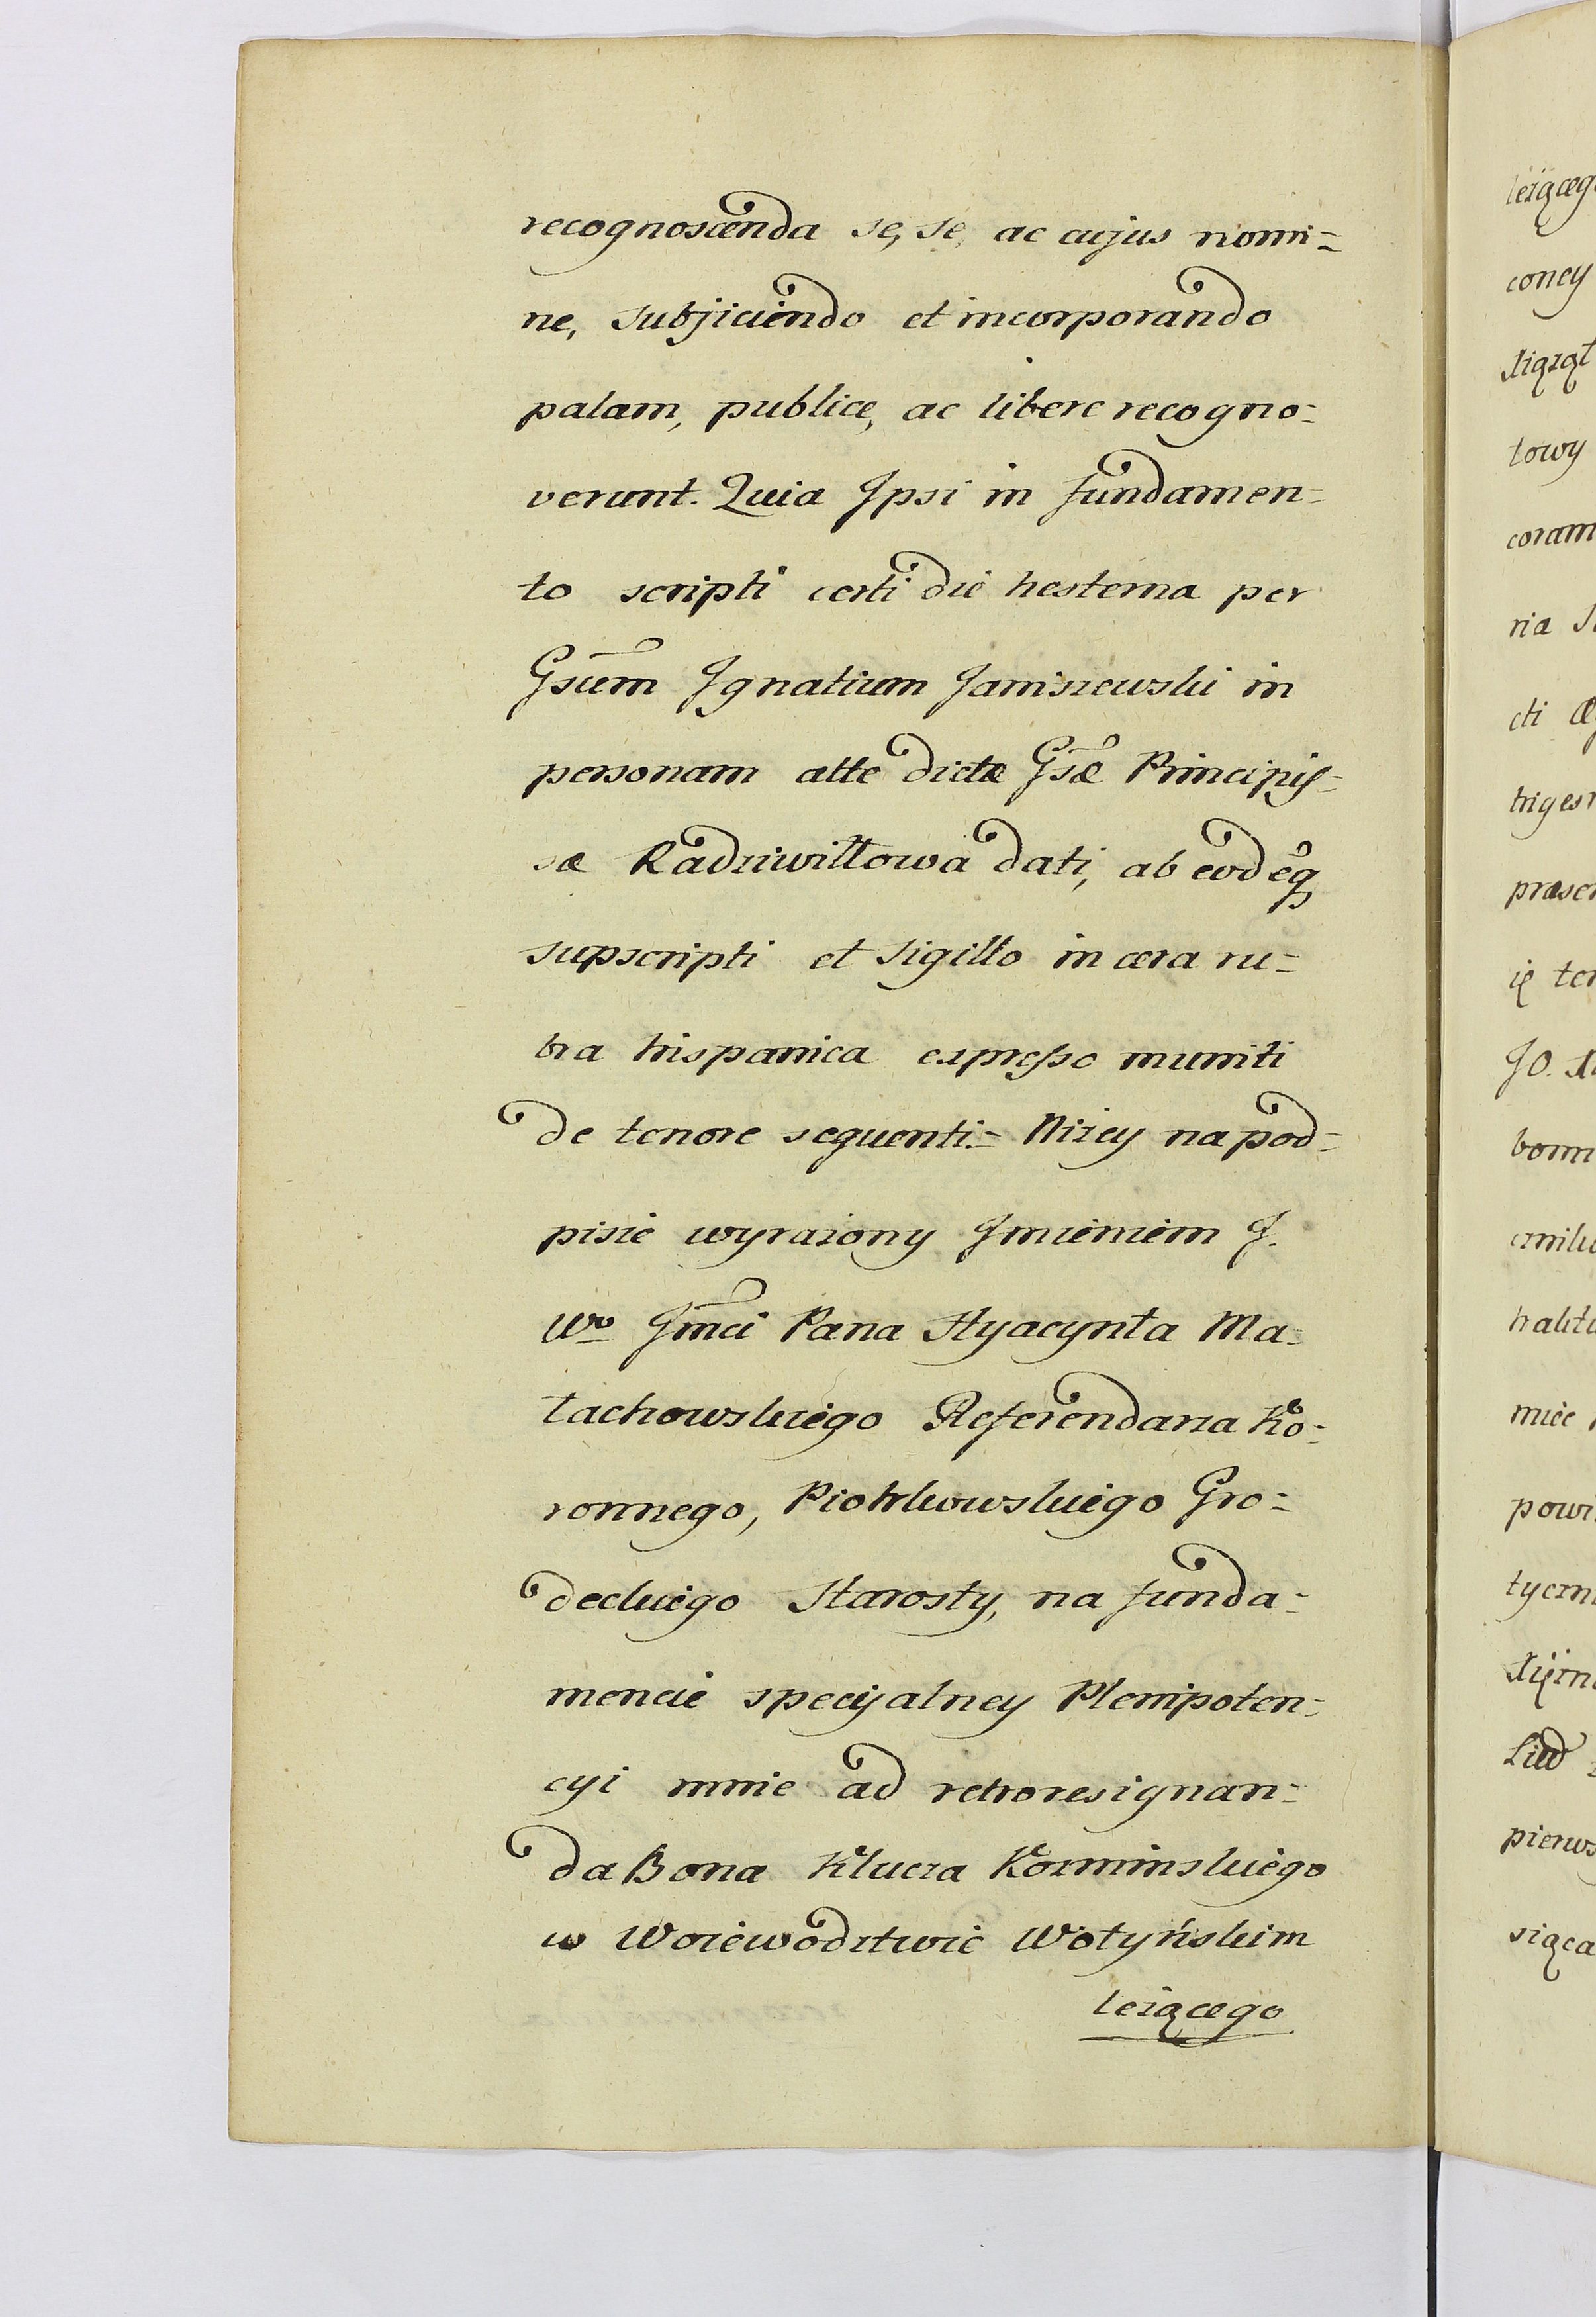 recognoscenda se, se, ac cujus nomi=
ne, subjiciendo et incorporando
palam, publice, ac libere recogno=
verunt. Quia Ipsi in fundamen=
to scripti certi die hesterna per
Gsum Ignatium Janiszewski in
personam alte dictæ Gsæ Principis=
sæ Radziwiłłowa dati, ab eodeq
supscripti et sigillo in cera ru=
bra hispanica expresso muniti
de tenore sequenti.= Niżey na pod=
pisie wyrażony Imieniem J.
Wo Jmci Pana Hyacynta Ma=
łachowskiego Referendarza Ko=
ronnego, Piotrkowskiego Gro=
deckiego Starosty, na funda=
mencie specyalney Plenipoten=
cyi mnie ad retroresignan=
da Bona Klucza Kozminskiego
w Woiewodztwie Wołyńskim
leżącego
leżącego
coney
Xiążąt
towy
coram
ria
cti
præsen
JO.
mieć
Xiężn
pierws
siąca